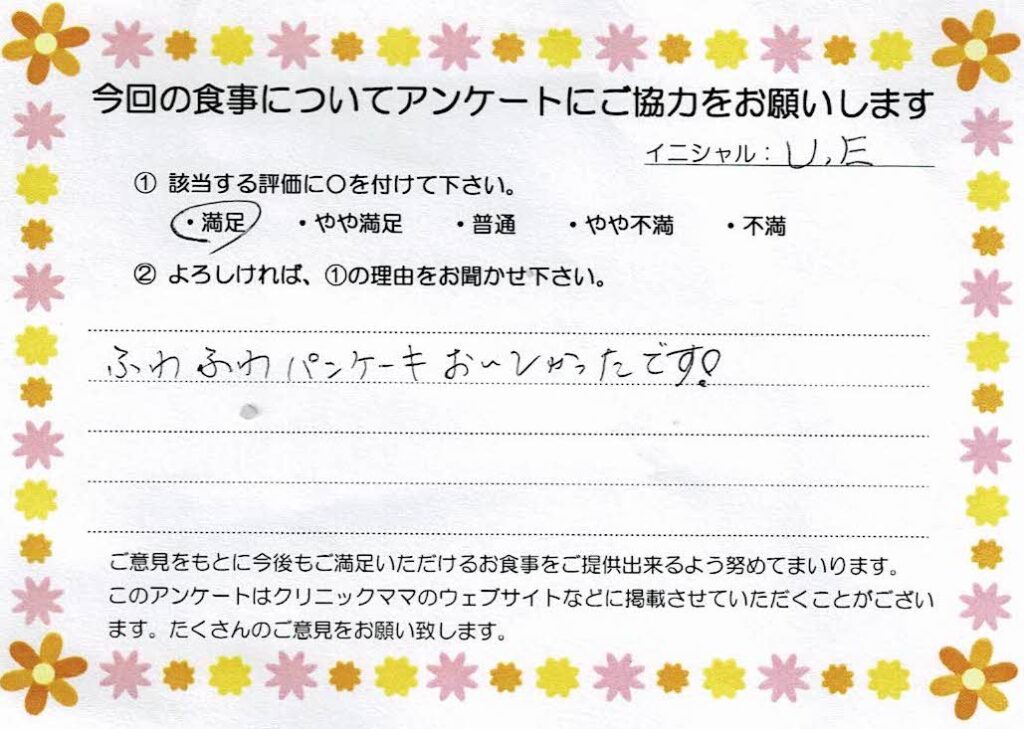 今回の食事についてアンケートにご協力をお願いします
イニシャル：U,E
① 該当する評価に〇を付けて下さい。
・満足 ・やや満足 ・普通 ・やや不満 ・不満
② よろしければ、①の理由をお聞かせ下さい。
ふわふわパンケーキおいしかったです!
ご意見をもとに今後もご満足いただけるお食事をご提供出来るよう努めてまいります。
このアンケートはクリニックママのウェブサイトなどに掲載させていただくことがござい
ます。たくさんのご意見をお願い致します。